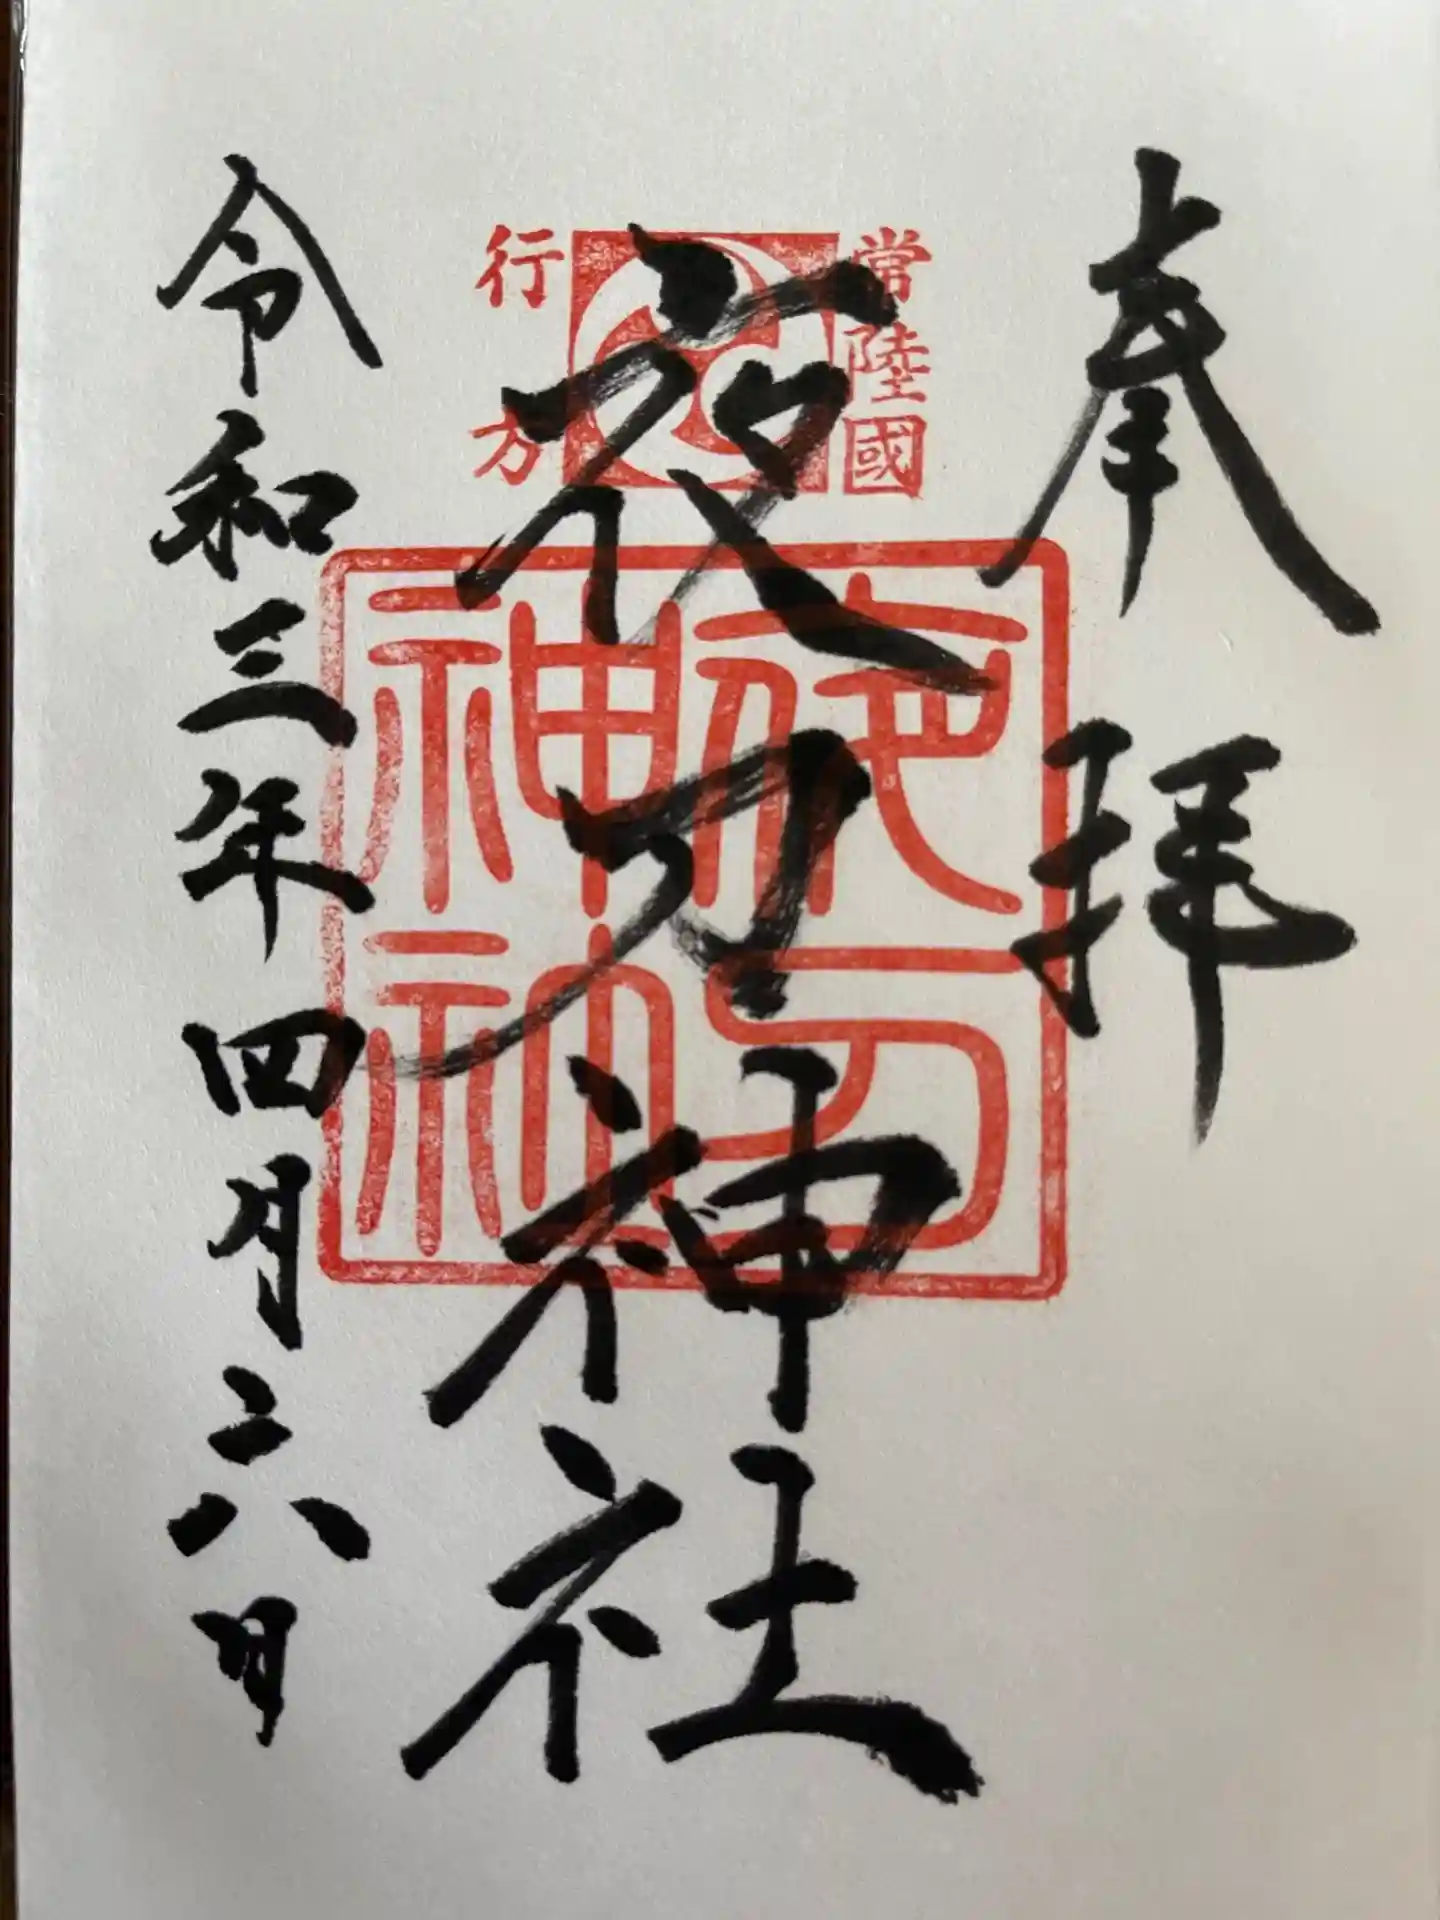 奉拝
常陸國
行方
夜刀神社
夜刀
神社
令和三年四月二六日